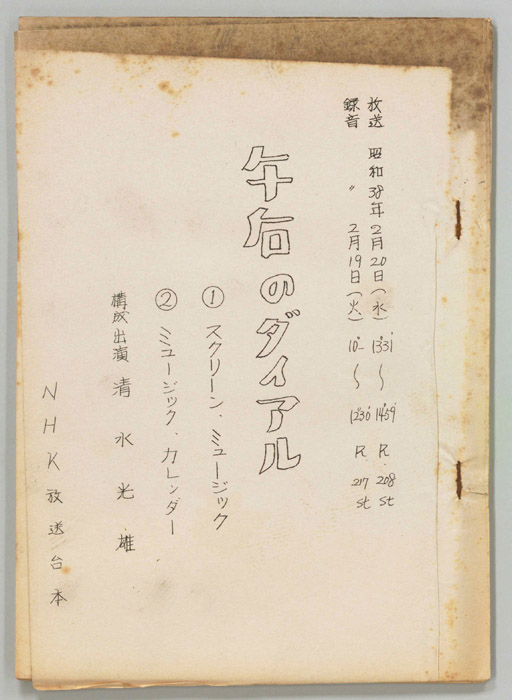 放送 昭和38年2月20日(水) 13°31'〜14°59' R. 208 st
録音 〃 2月19日(火) 10°-〜12°30' R 217 st
午后のダイアル
① スクリーン.ミュージック
② ミュージック.カレンダー
構成出演 清水光雄
NHK放送台本